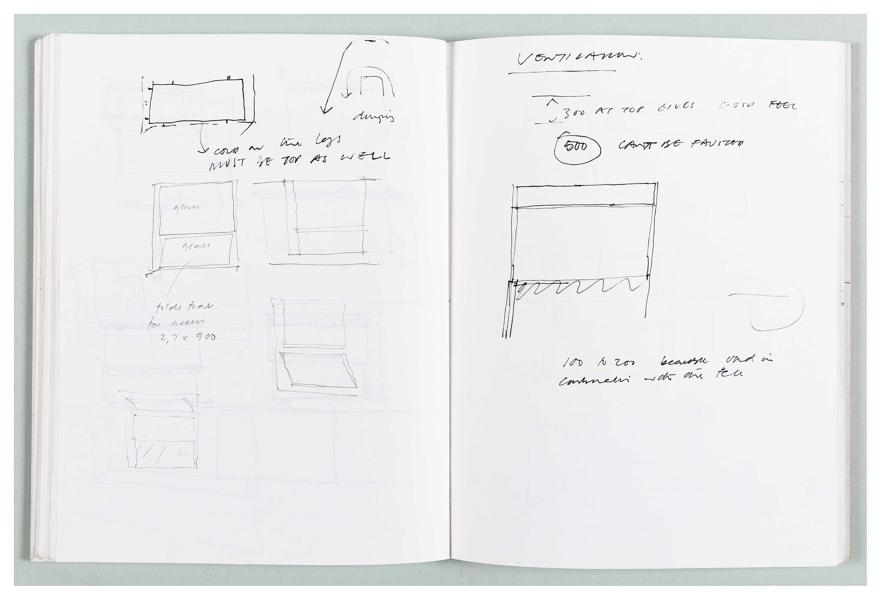 COLD on the legs
MUST BE TOP AS WELL
glass
glass
folds
for access
2,7 x 900
VENTILATION.
300 AT TOP GIVES GOOD FEEL
500 CAN'T BE FAULTED
100 to 200 because used in
with the